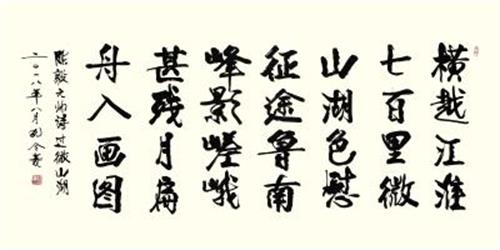 横越江淮
七百里微
山湖色慰
征途鲁南
峰影嵯峨
甚残月扁
舟入画图
陈毅元帅诗过微山湖
二〇一八年八月孔令